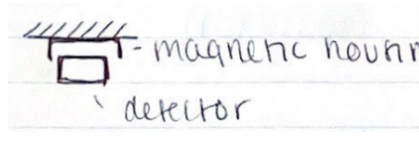 - magnetic
detector